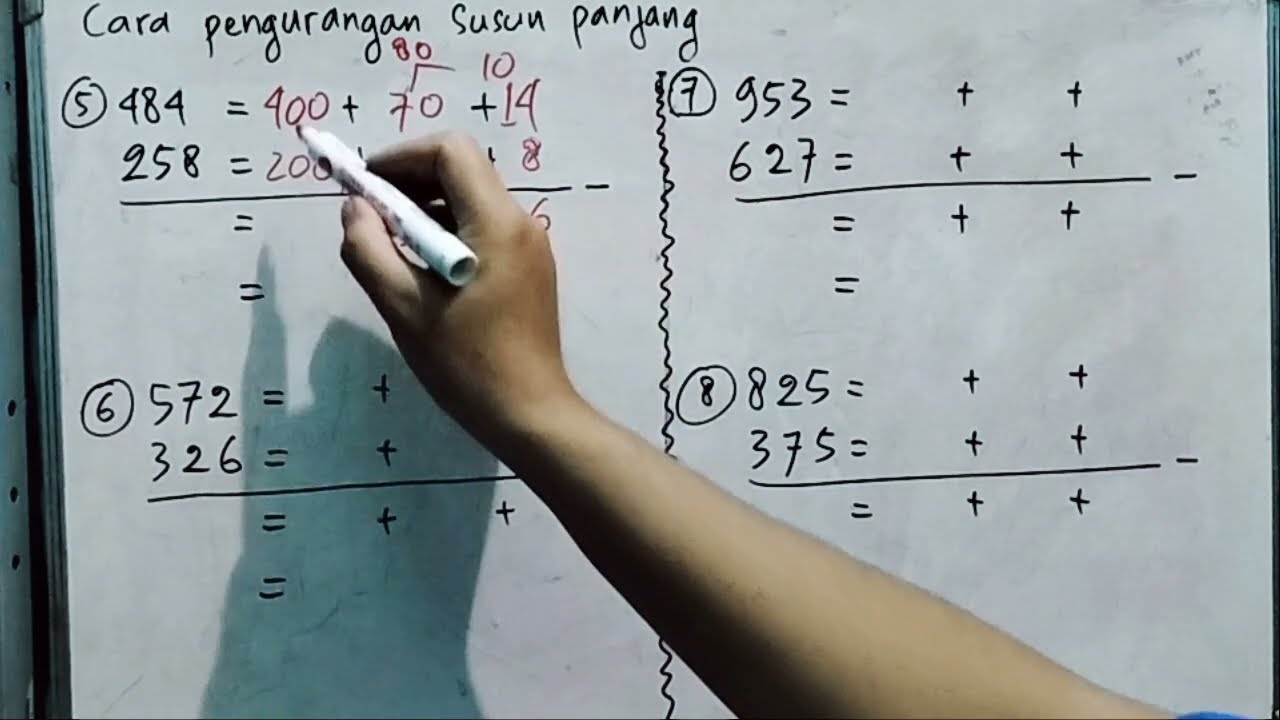 Cara pengurangan susun panjang
80 10
⑤ 484 = 400 + 70 + 14
258 = 200 + + 8
-
= 6
=
⑥ 572 = +
326 = +
= + +
=
⑦ 953 = + +
627 = + +
-
= + +
=
⑧ 825 = + +
375 = + +
-
= + +